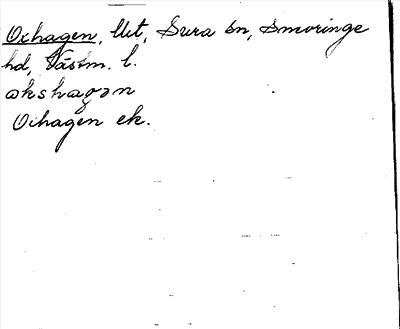 Oxhagen, Utt, Sura sn, Snevringe
hd, Västm. l.
ωkshagən
Oxhagen ek.